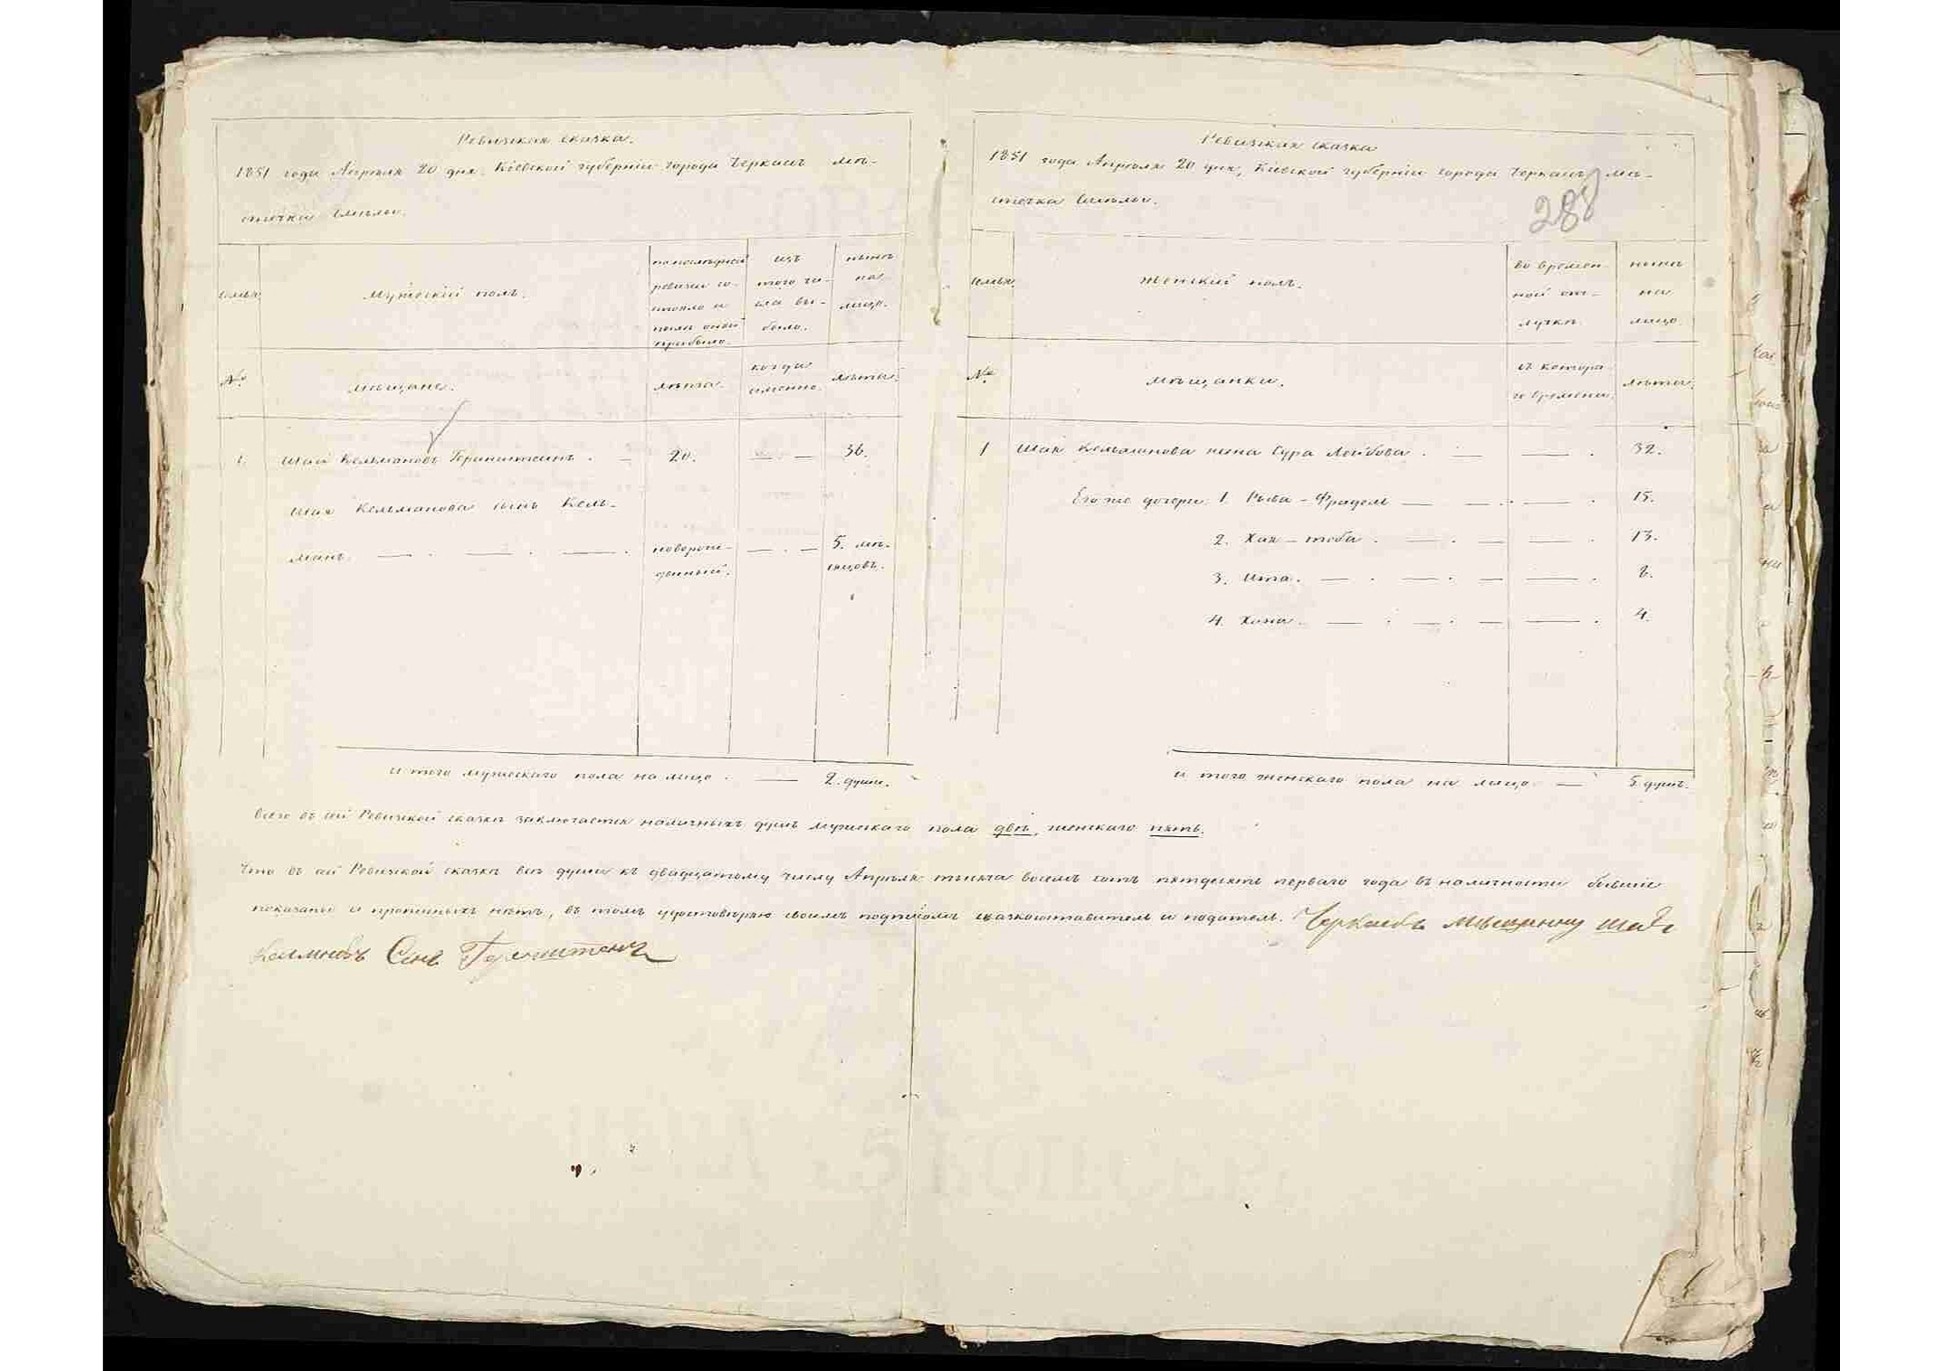 Ревизкая сказка.
1851 года Апрѣля 20 дня. Кіевской губерніи города Черкасъ мѣ-
стечка Смѣлы.
семья.
Мужескій полъ.
по послѣдней
ревизіи со-
стояло и
послѣ оной
прибыло.
изъ
того чи-
сла вы-
было.
нынѣ
на
лицо.
№
мѣщане.
лѣта.
когда
именно.
лѣта.
1. Шая Кельмановъ — 20. — — 36.
Шая Кельманова сынъ Кель-
манъ. — . — . — . новорож- — . — 5. мѣ-
денный. сяцовъ.
и того мужескаго пола на лицо . — 2. души.
Ревизкая сказка
1851 года Апрѣля 20 дня, Кіевской губерніи города Черкасъ мѣ-
стечка Смѣлы.
288
семья.
Женскій полъ.
во времен-
ной от-
лучкѣ
нынѣ
на
лицо
№
мѣщанки.
съ котора-
го времени.
лѣта.
1 Шая Кельманова жена Сура Лейбова . — — . 32.
Его же дочери: 1. Рыва - Фрадель — — . — . 15.
2. Хая - тоба . — . — — . 13.
3. Ита. — . — . — — . 8.
4. Хана. — . — . — — . 4.
и того женскаго пола на лицо — 5 душъ.
Всего въ сей Ревизкой сказкѣ заключается наличныхъ душъ мужескаго пола двѣ, женскаго пять.
Что въ сей Ревизкой сказкѣ всѣ души къ двадцатому числу Апрѣля тысяча восемь сотъ пятдесятъ перваго года въ наличности бывшіе
показаны и прописныхъ нѣтъ, въ томъ удостовѣряю своимъ подписомъ сказкоставитель и податель. мѣщанину